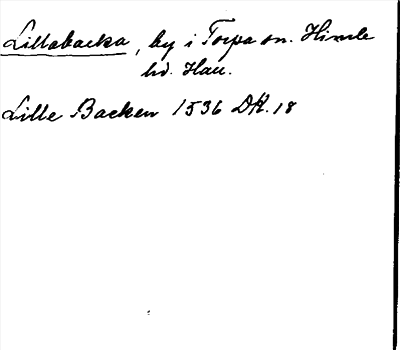 Lillabacka, by i Torpa sn. Himle
hd. Hall.
Lille Backen 1536 DK. 18